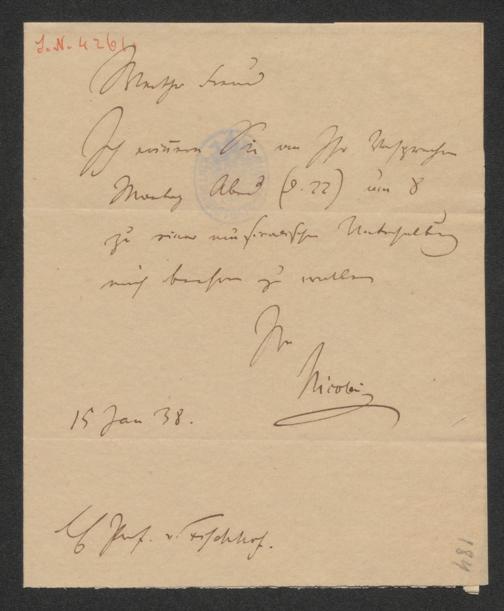 I.N. 4261
Werther Freund
Ich erinnere Sie an Ihr Versprechen
Montag Abend (d. 22) um 8
zu einer musikalischen Unterhaltung
mich beehren zu wollen
Ihr
Nicolai
15 Jan 38.
Prof. v. Fischhof.
184